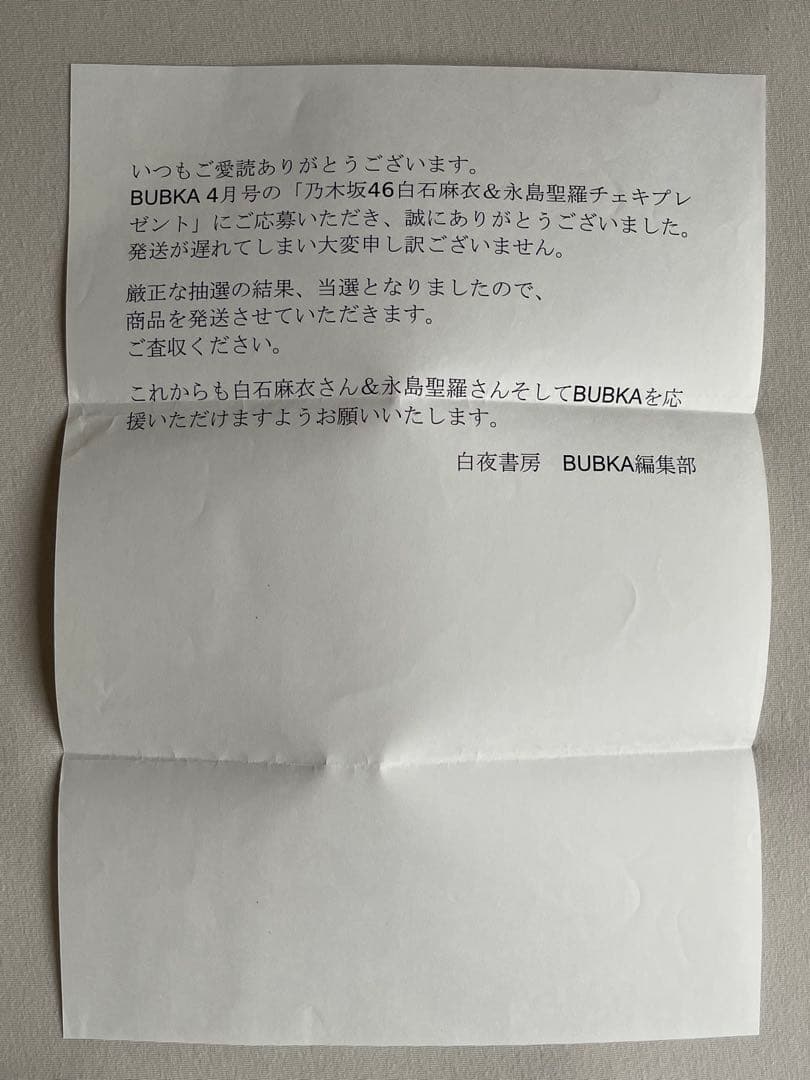 いつもご愛読ありがとうございます。
BUBKA 4月号の「乃木坂46白石麻衣＆永島聖羅チェキプレ
ゼント」にご応募いただき、誠にありがとうございました。
発送が遅れてしまい大変申し訳ございません。
厳正な抽選の結果、当選となりましたので、
商品を発送させていただきます。
ご査収ください。
これからも白石麻衣さん＆永島聖羅さんそしてBUBKAを応
援いただけますようお願いいたします。
白夜書房　BUBKA編集部